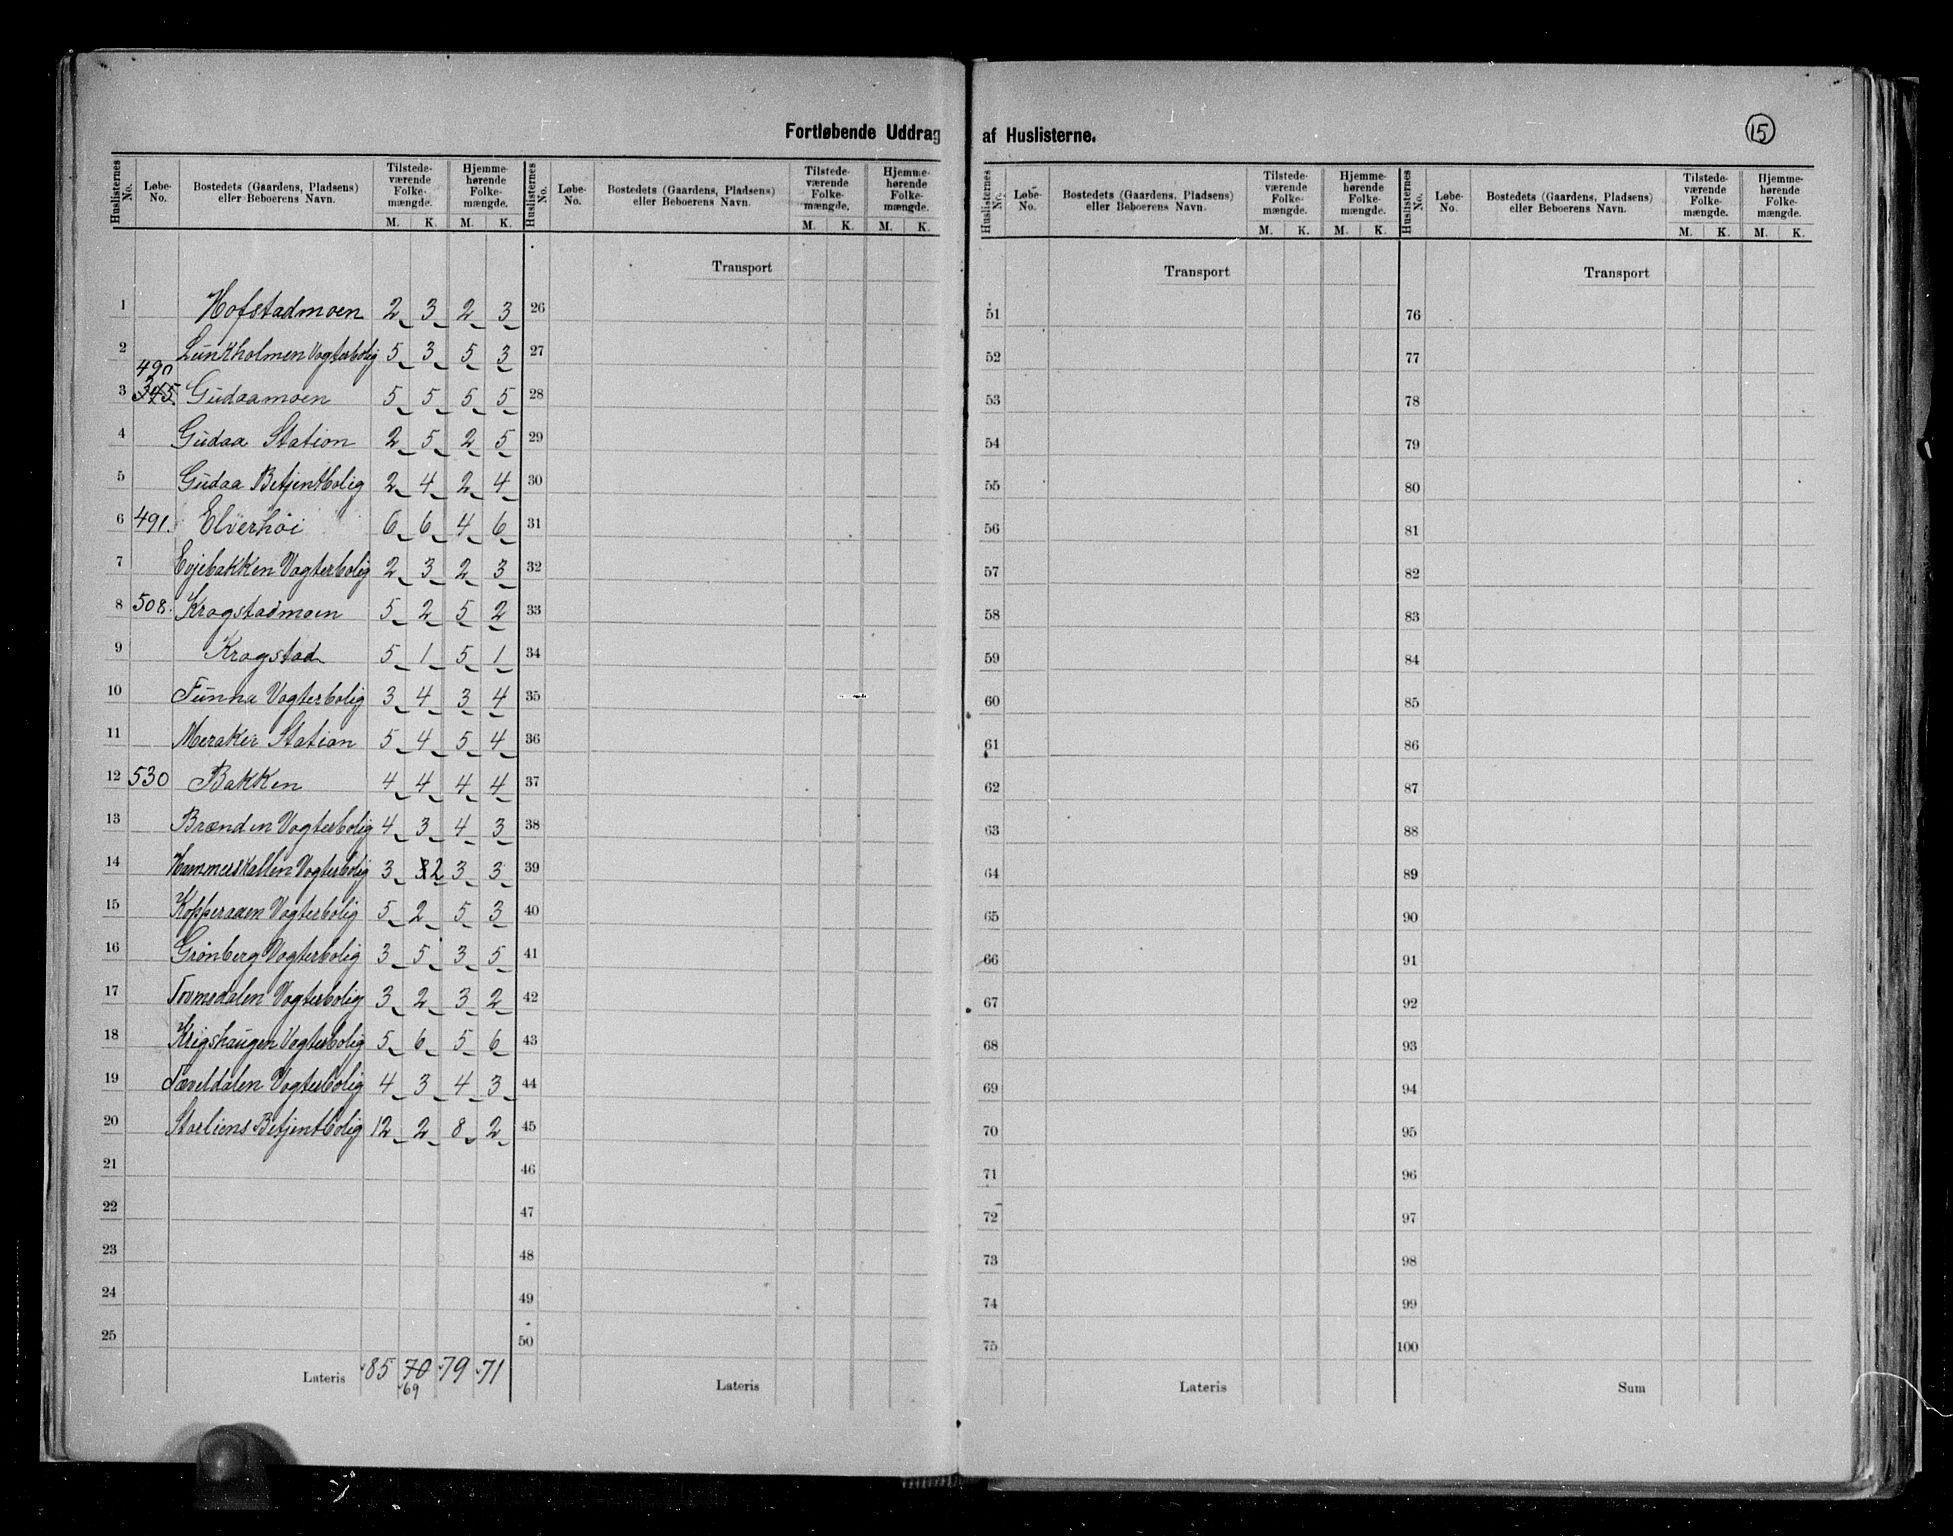 Fortløbende Uddrag af Huslisterne.
15
Huslisternes No. Løbe-No. Bostedets (Gaardens, Pladsens) eller Beboerens Navn. Tilstedeværende Folkemængde. M. K. Hjemmehørende Folkemængde. M. K.
Huslisternes No. Løbe-No. Bostedets (Gaardens, Pladsens) eller Beboerens Navn. Tilstedeværende Folkemængde. M. K. Hjemmehørende Folkemængde. M. K.
Huslisternes No. Løbe-No. Bostedets (Gaardens, Pladsens) eller Beboerens Navn. Tilstedeværende Folkemængde. M. K. Hjemmehørende Folkemængde. M. K.
Huslisternes No. Løbe-No. Bostedets (Gaardens, Pladsens) eller Beboerens Navn. Tilstedeværende Folkemængde. M. K. Hjemmehørende Folkemængde. M. K.
Transport Transport Transport
1 Hofstadmoen 2 3 2 3 26 51 76
2 Lunkholmen Vogterbolig 5 3 5 3 27 52 77
490
3 345. Gudaamoen 5 5 5 5 28 53 78
4 Gudaa Station 2 5 2 5 29 54 79
5 Gudaa Betjentbolig 2 4 2 4 30 55 80
6 491. Elverhöi 6 6 4 6 31 56 81
7 Evjebakken Vogterbolig 2 3 2 3 32 57 82
8 508. Krogstadmoen 5 2 5 2 33 58 83
9 Krogstad 5 1 5 1 34 59 84
10 Funna Vogterbolig 3 4 3 4 35 60 85
11 Meraker Station 5 4 5 4 36 61 86
12 530 Bakken 4 4 4 4 37 62 87
13 Brænden Vogterbolig 4 3 4 3 38 63 88
14 Hammerskallen Vogterbolig 3 3 2 3 3 39 64 89
15 Kopperaaen Vogterbolig 5 2 5 3 40 65 90
16 Grønberg Vogterbolig 3 5 3 5 41 66 91
17 Tovmodalen Vogterbolig 3 2 3 2 42 67 92
18 Krigshaugen Vogterbolig 5 6 5 6 43 68 93
19 Tæveldalen Vogterbolig 4 3 4 3 44 69 94
20 Storliens Betjentbolig 12 2 8 2 45 70 95
21 46 71 96
22 47 72 97
23 48 73 98
24 49 74 99
25 50 75 100
Lateris 85 70 79 71 Lateris Lateris Sum
69